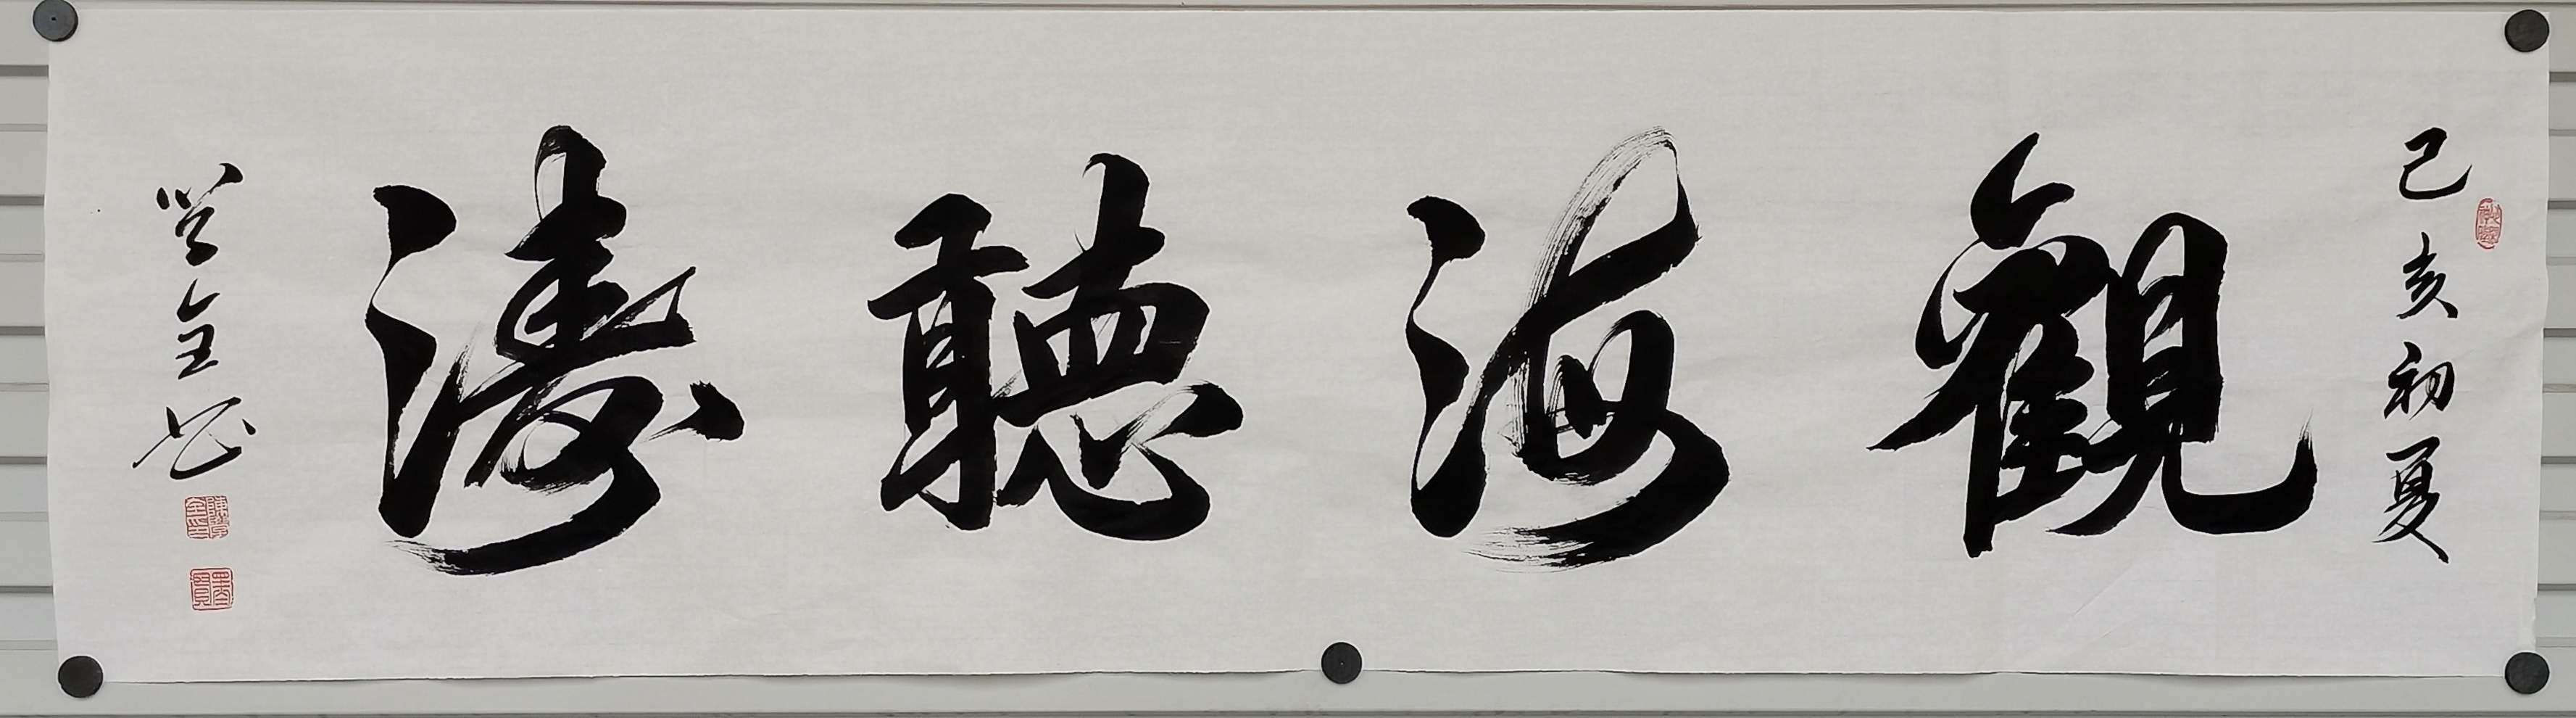 己亥初夏
觀海聽濤